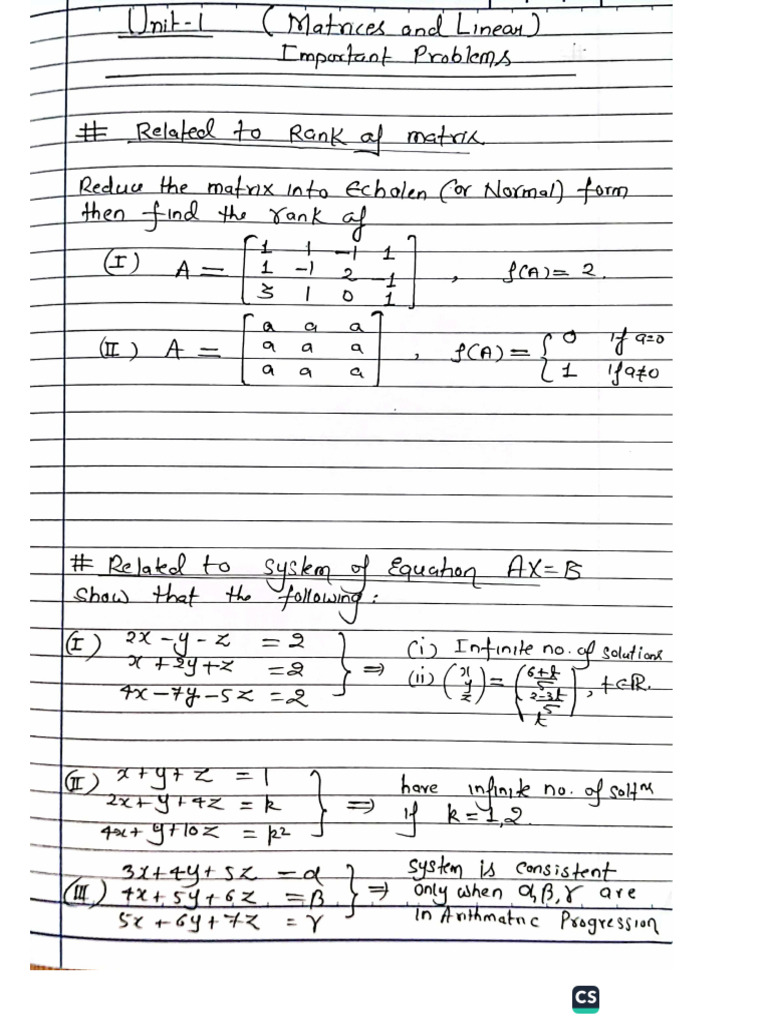 Unit-1 (Matrices and Linear)
Important Problems
# Related to Rank of matrix
Reduce the matrix into Echolen (or Normal) form
then find the rank of
(I) A = [1 1 -1 1
1 -1 2 -1
3 1 0 1] , ρ(A) = 2.
(II) A = [a a a
a a a
a a a] , ρ(A) = { 0 if a=0
1 if a≠0
# Related to System of Equation AX=B
Show that the following:
(I) 2x - y - z = 2
x + 2y + z = 2
4x - 7y - 5z = 2 } ⇒ (i) Infinite no. of solutions
(ii) (x y z) = (6+t/5 2-3t/5 t), t∈R.
(II) x + y + z = 1
2x + y + 4z = k
4x + y + 10z = k² } ⇒ have infinite no. of solⁿs
if k = 1,2.
(III) 3x + 4y + 5z = α
4x + 5y + 6z = β
5x + 6y + 7z = γ } ⇒ System is consistent
only when α,β,γ are
in Arithmatric Progression
CS